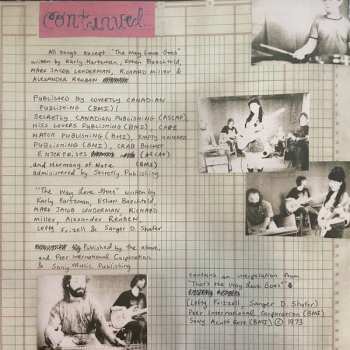 continued
All songs except "The Way Love Goes"
written by Karly Hartzman, Ethan Baechtold,
MARK JACOB LENDERMAN, RICHARD MILLER &
ALEXANDER REUBEN
PUBLISHED BY COVERTLY CANADIAN
PUBLISHING (BMI)/
SECRETLY CANADIAN PUBLISHING (ASCAP),
HISS LOVERS PUBLISHING (BMI), CARE
WATCH PUBLISHING (BMI), EMPTY RICHARD
PUBLISHING (BMI), CRAB BUCKET
ENTERPRISES (ASCAP)
and Harmony of Note (BMI)
administered by Secretly Publishing
"The Way Love Goes" written by
Karly Hartzman, Ethan Baechtold,
MARK JACOB LENDERMAN, RICHARD
Miller, Alexander Reuben,
Lefty Frizell & Sanger D. Shafer
Published by the above,
and Peer International Corporation
& Sony Music Publishing
contains an interpolation from
"That's the Way Love Goes"
(Lefty Frizell, Sanger D. Shafer)
Peer International Corporation (BMI)
Sony Acuff Rose (BMI) © 1973